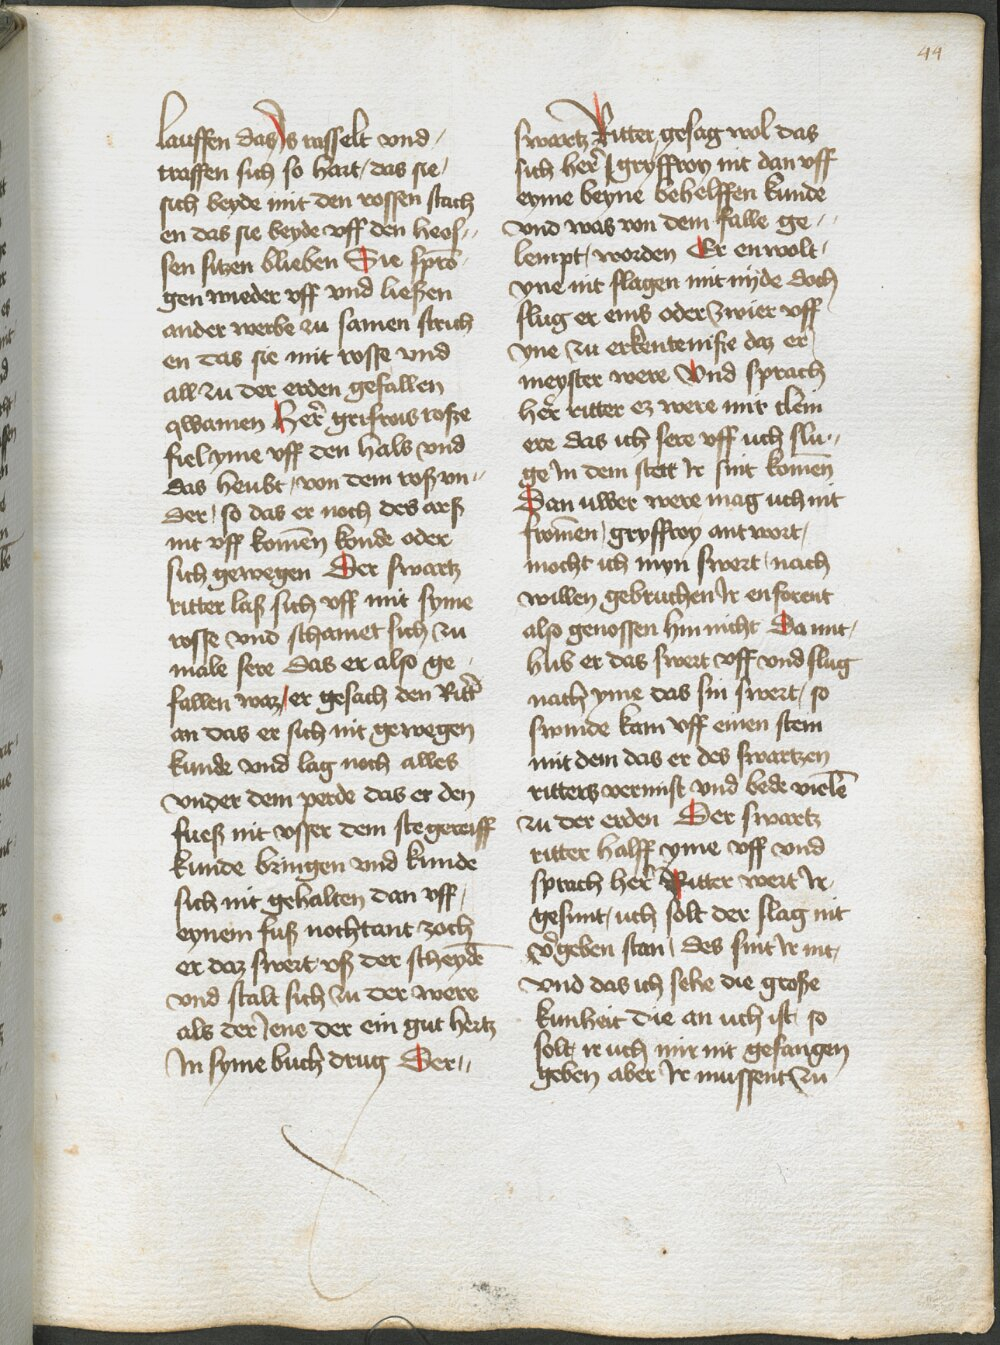 44
lauffen das Is rasselt vnd
traffen sich so hart das sie
sich beyde mit den rossen stach
en das sie beyde vff den heos-
sen sitzen blieben Sie spro-
gen wieder vff vnd ließen
ander werbe zu samen strich
en das sie mit rosse vnd
all zu der erden gefallen
qwamen Her grifrois roße
fiel yme vff den hals vnd
das heubt von dem roß vn-
der so das er noch des arß
nit vff komen konde oder
sich gewegen Der swartz
ritter laß sich vff mit syme
rosse vnd schamet sich zu
male sere das er also ge
fallen waz er gesach den Ritter
an das er sich nit gewegen
kunde vnd lag noch alles
vnder dem perde das er den
fueß nit vsser dem stegereiff
kunde bringen vnd kunde
sich nit gehalten dan vff
eynem fuß nochtant zoch
er daz swert vß der scheyde
vnd stalt sich zu der were
als der Jene der ein gut hertz
In syme buch drug Der
swartz Ritter gesag wol das
sich her gryffroy nit dan vff
eyme beyne behelffen kunde
vnd was von dem falle ge
lempt worden Er en wolt
yne nit slagen mit nyde doch
slug er eins oder zwier vff
yne zu erkentenisse daz er
meyster were Vnd sprach
her ritter ez were mir clein
ere das ich sere vff uch slu-
ge In dem stett Ir sint komen
Dan uwer were mag uch nit
fromen gryffroy antwort
mocht ich myn swert nach
willen gebruchen Ir en forent
also genossen hin nicht Da mit
hub er das swert vff vnd slug
nach yme das sin swert so
swinde kam vff einen stein
mit dem das er des swartzen
ritters vermist vnd bede vielen
zu der erden Der swartz
ritter halff yme vff vnd
sprach her Ritter wert Ir
gesunt uch solt der slag nit
vergeben stan des sint Ir nit
vnd das ich sehe die große
kunheit die an uch ist so
solt ir uch mir nit gefangen
geben aber Ir mussent zu